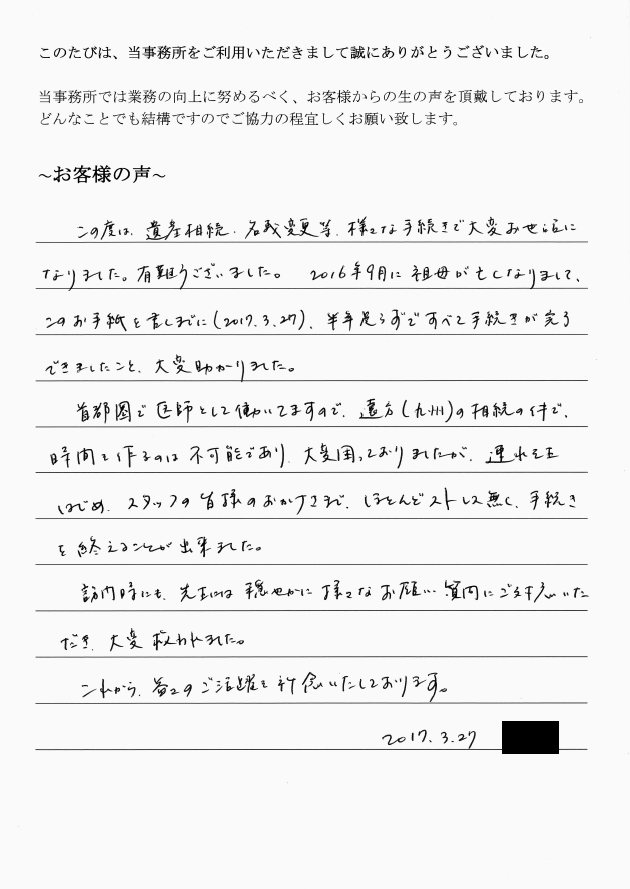 このたびは、当事務所をご利用いただきまして誠にありがとうございました。
当事務所では業務の向上に努めるべく、お客様からの生の声を頂戴しております。
どんなことでも結構ですのでご協力の程宜しくお願い致します。
~お客様の声~
この度は、遺産相続、名義変更等、様々な手続きで大変お世話に
なりました。有難うございました。 2016年9月に祖母が亡くなりまして、
このお手紙を書くまでに(2017.3.27)、半年足らずですべて手続きが完了
できましたこと、大変助かりました。
首都圏で医師として働いてますので、遠方(九州)の相続の件で、
時間を作るのは不可能であり、大変困っておりましたが、先生を
はじめ、スタッフの皆様のおかげさまで、ほとんどストレス無く、手続き
を終えることが出来ました。
訪問時にも、先生には穏やかに様々なお願い、質問にご対応いた
だき、大変救われました。
これから、益々のご活躍を祈念いたしております。
2017.3.27